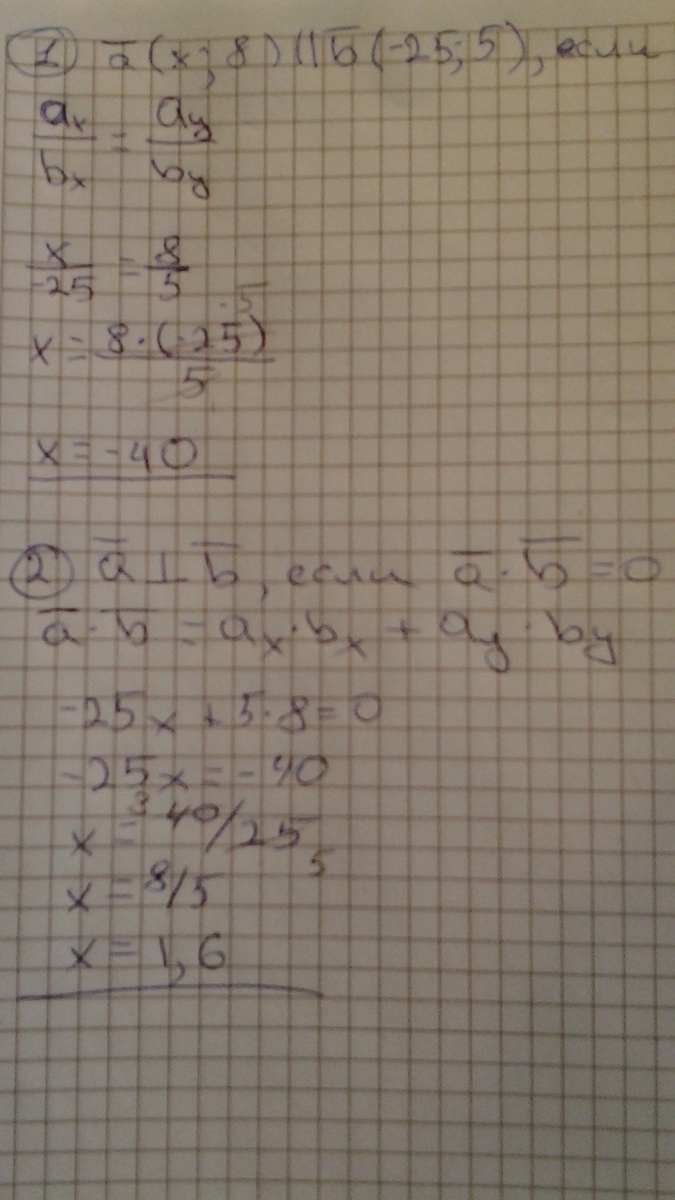 1 a̅(x; 8) || b̅(-25; 5), если
aₓ/bₓ = aᵧ/bᵧ
x/-25 = 8/5
-5
x = 8·(-25)/5
x = -40
2 a̅ ⊥ b̅, если a̅·b̅ = 0
a̅·b̅ = aₓ·bₓ + aᵧ·bᵧ
-25x + 5·8 = 0
-25x = -40
x = 40/25
5
x = 8/5
x = 1,6